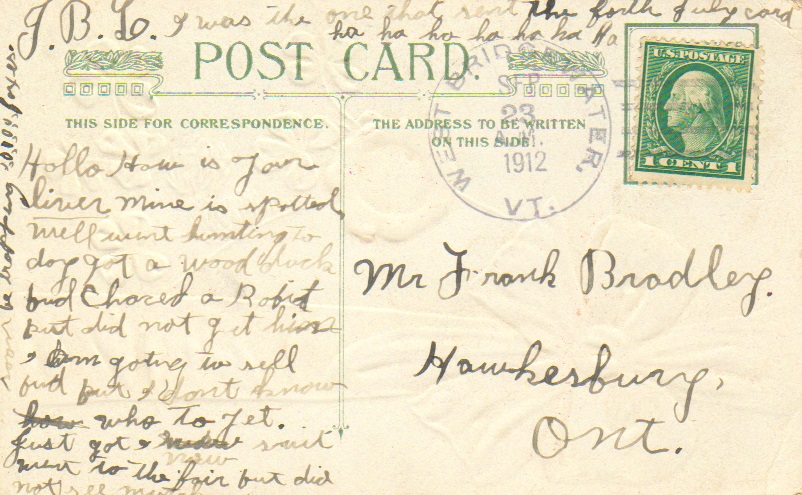 J.B.L. I was the one that sent the forth July card
ha ha ha ha ha ha Ha
POST CARD.
THIS SIDE FOR CORRESPONDENCE.
THE ADDRESS TO BE WRITTEN
ON THIS SIDE
WEST BRIDGEWATER,
SEP
23
A.M.
1912
VT.
U.S. POSTAGE
1 CENT 1
Hollo How is your
liver mine is spotted,
Well went hunting to
day got a wood chuck
bud Chaced a Robit
but did not get him
I am going to sell
bud but I dont know
how who to yet.
Just got a new suit
new
went to the fair but did
not see much
be trapping
soon
Mr Frank Bradley.
Hawkesbury,
Ont.